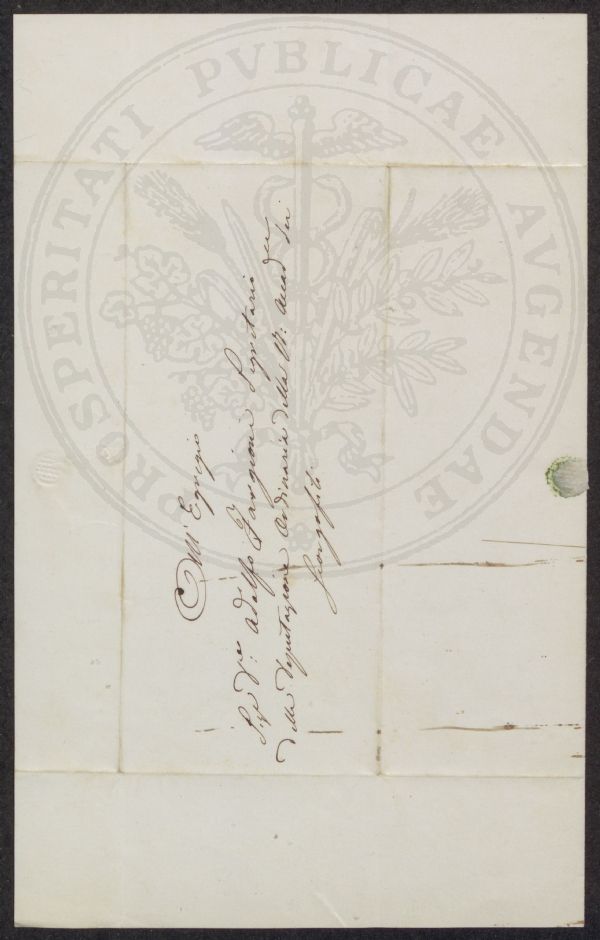 PROSPERITATI PVBLICAE AVGENDAE
All' Egregio
Sigr Dre: Adolfo Targioni Segretario
della Deputazione Ordinaria della R: Accad dei
Georgofili